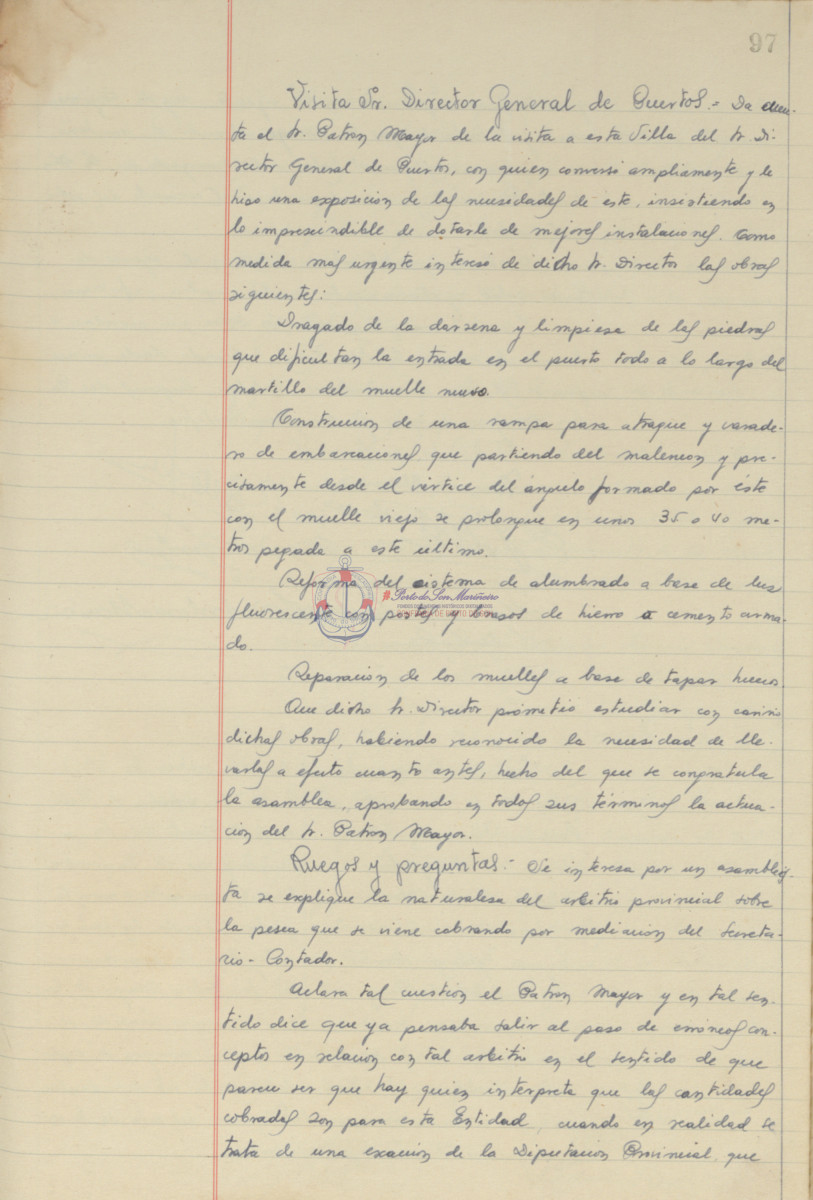 97
Visita Sr. Director General de Puertos.= Da cuen-
ta el Sr. Patron Mayor de la visita a esta Villa del Sr. Di-
rector General de Puertos, con quien conversó ampliamente y le
hizo una exposición de las necesidades de este, insistiendo en
lo imprescindible de dotarle de mejores instalaciones. Como
medida mas urgente interesó de dicho Sr. Director las obras
siguientes:
Dragado de la darsena y limpiesa de las piedras
que dificultan la entrada en el puerto todo a lo largo del
martillo del muelle nuevo.
Construccion de una rampa para atraque y varade-
ro de embarcaciones que partiendo del malencon y pre-
cisamente desde el vértice del angulo formado por éste
con el muelle viejo se prolongue en unos 35 o 40 me-
tros pegada a este último.
Reforma del sistema de alumbrado a base de luz
Porto do Son Mariñeiro
fluorescente con postes y brazos de hierro o cemento arma-
do.
Reparacion de los muelles a base de tapar huecos.
Que dicho Sr. Director prometió estudiar con cariño
dichas obras, habiendo reconocido la necesidad de lle-
varlas a efecto cuanto antes, hecho del que se congratula
la asamblea, aprobando en todos sus términos la actua-
ción del Sr. Patron Mayor.
Ruegos y preguntas.- Se interesa por un asambleis-
ta se explique la naturalesa del arbitrio provincial sobre
la pesca que se viene cobrando por mediacion del Secreta-
rio-Contador.
Aclara tal cuestion el Patron Mayor y en tal sen-
tido dice que ya pensaba salir al paso de erróneos con-
ceptos en relacion con tal arbitrio en el sentido de que
parece ser que hay quien interpreta que las cantidades
cobradas son para esta Entidad, cuando en realidad se
trata de una exaccion de la Diputacion Provincial que